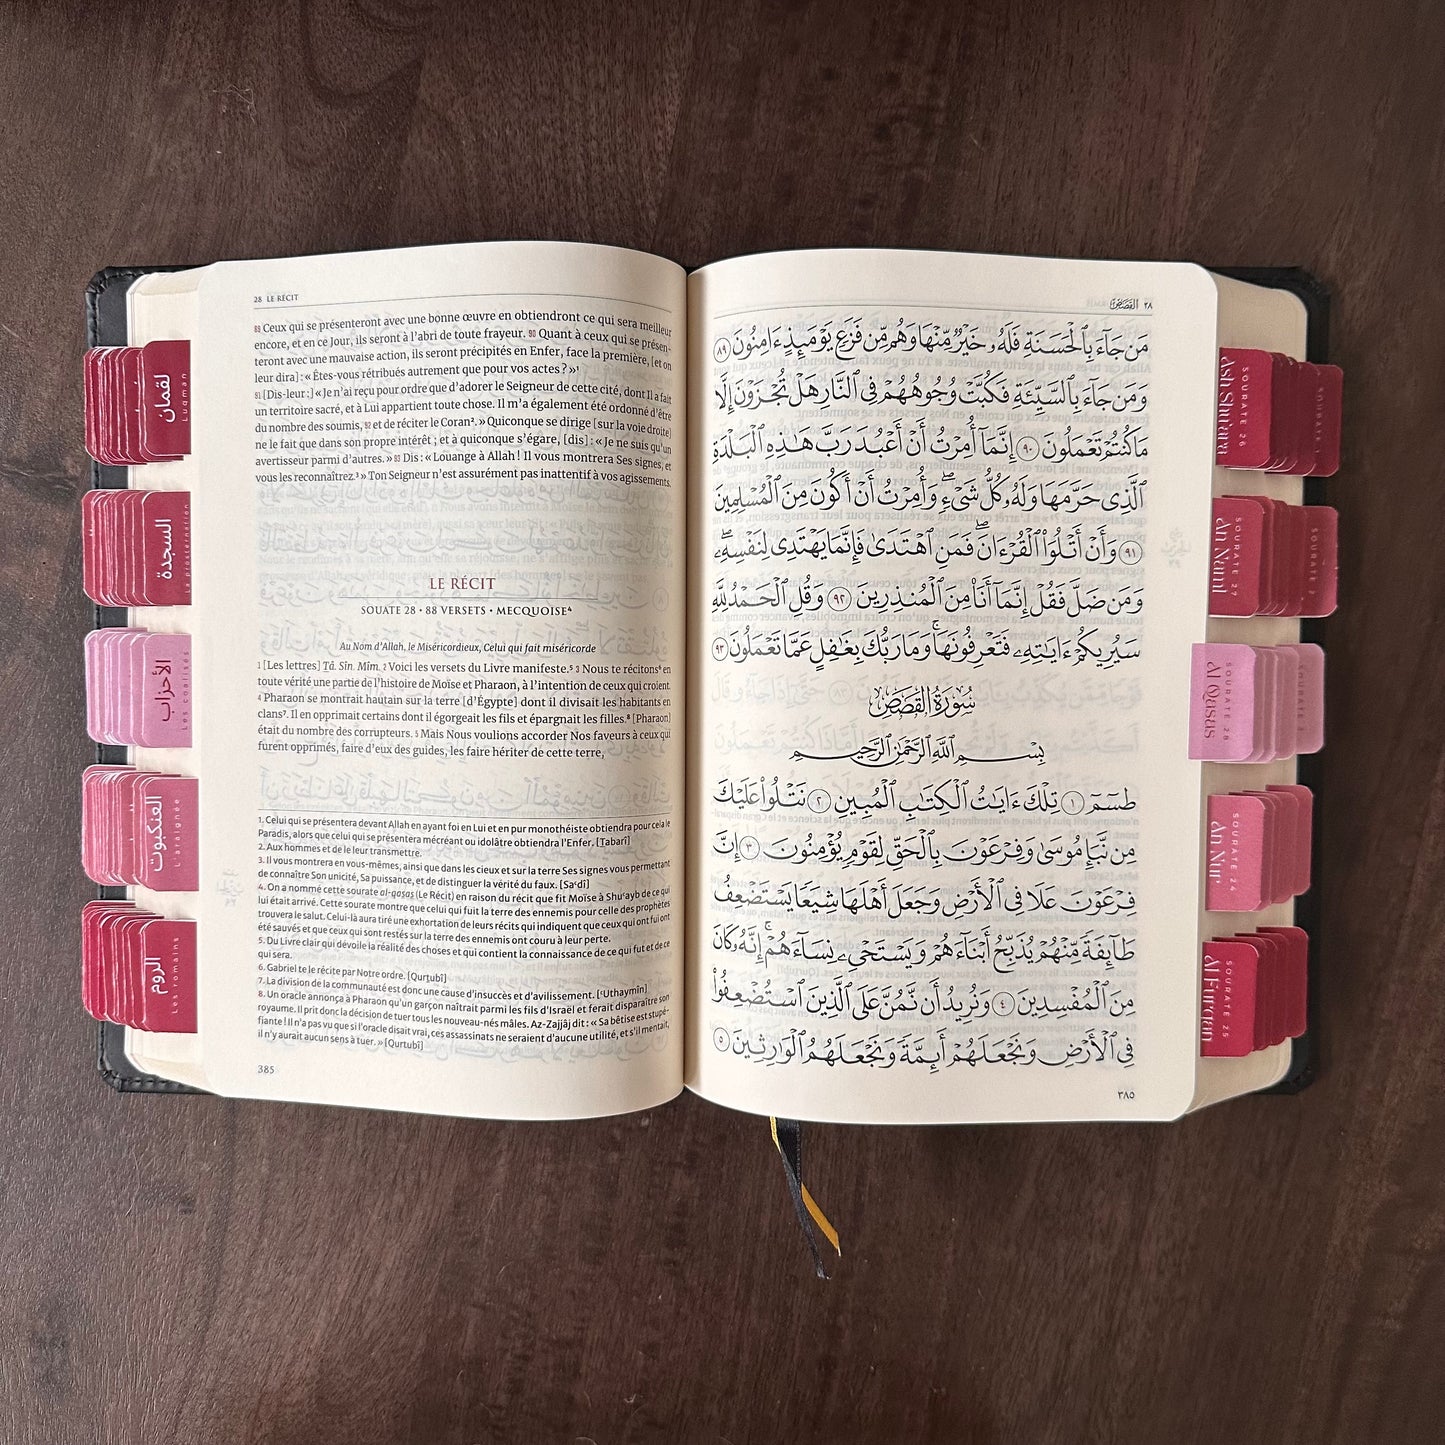 28 LE RÉCIT
88 Ceux qui se présenteront avec une bonne œuvre en obtiendront ce qui sera meilleur
encore, et en ce Jour, ils seront à l'abri de toute frayeur. 90 Quant à ceux qui se présen-
teront avec une mauvaise action, ils seront précipités en Enfer, face la première, [et on
leur dira] : « Êtes-vous rétribués autrement que pour vos actes ? »¹
[Dis-leur :] « Je n'ai reçu pour ordre que d'adorer le Seigneur de cette cité, dont Il a fait
un territoire sacré, et à Lui appartient toute chose. Il m'a également été ordonné d'être
du nombre des soumis, 92 et de réciter le Coran². » Quiconque se dirige [sur la voie droite]
ne le fait que dans son propre intérêt ; et à quiconque s'égare, [dis] : « Je ne suis qu'un
avertisseur parmi d'autres. » 93 Dis : « Louange à Allah ! Il vous montrera Ses signes, et
vous les reconnaîtrez.³ » Ton Seigneur n'est assurément pas inattentif à vos agissements.
LE RÉCIT
SOUATE 28 • 88 VERSETS • MECQUOISE⁴
Au Nom d'Allah, le Miséricordieux, Celui qui fait miséricorde
1 [Les lettres] Tâ. Sîn. Mîm. 2 Voici les versets du Livre manifeste.⁵ 3 Nous te récitons⁶ en
toute vérité une partie de l'histoire de Moïse et Pharaon, à l'intention de ceux qui croient.
4 Pharaon se montrait hautain sur la terre [d'Égypte] dont il divisait les habitants en
clans⁷. Il en opprimait certains dont il égorgeait les fils et épargnait les filles.⁸ [Pharaon]
était du nombre des corrupteurs. 5 Mais Nous voulions accorder Nos faveurs à ceux qui
furent opprimés, faire d'eux des guides, les faire hériter de cette terre,
1. Celui qui se présentera devant Allah en ayant foi en Lui et en pur monothéiste obtiendra pour cela le
Paradis, alors que celui qui se présentera mécréant ou idolâtre obtiendra l'Enfer. [Tabarî]
2. Aux hommes et de le leur transmettre.
3. Il vous montrera en vous-mêmes, ainsi que dans les cieux et sur la terre Ses signes vous permettant
de connaître Son unicité, Sa puissance, et de distinguer la vérité du faux. [Sa'dî]
4. On a nommé cette sourate al-qasas (Le Récit) en raison du récit que fit Moïse à Shu'ayb de ce qui
lui était arrivé. Cette sourate montre que celui qui fuit la terre des ennemis pour celle des prophètes
trouvera le salut. Celui-là aura tiré une exhortation de leurs récits qui indiquent que ceux qui ont fui ont
été sauvés et que ceux qui sont restés sur la terre des ennemis ont couru à leur perte.
5. Du Livre clair qui dévoile la réalité des choses et qui contient la connaissance de ce qui fut et de ce
qui sera.
6. Gabriel te le récite par Notre ordre. [Qurtubî]
7. La division de la communauté est donc une cause d'insuccès et d'avilissement. ['Uthaymîn]
8. Un oracle annonça à Pharaon qu'un garçon naîtrait parmi les fils d'Israël et ferait disparaître son
royaume. Il prit donc la décision de tuer tous les nouveau-nés mâles. Az-Zajjâj dit : « Sa bêtise est stupé-
fiante ! Il n'a pas vu que si l'oracle disait vrai, ces assassinats ne seraient d'aucune utilité, et s'il mentait,
il n'y aurait aucun sens à tuer. » [Qurtubî]
385
القصص ٢٨
مَن جَآءَ بِٱلْحَسَنَةِ فَلَهُۥ خَيْرٌ مِّنْهَا وَهُم مِّن فَزَعٍ يَوْمَئِذٍ ءَامِنُونَ ٨٩
وَمَن جَآءَ بِٱلسَّيِّئَةِ فَكُبَّتْ وُجُوهُهُمْ فِى ٱلنَّارِ هَلْ تُجْزَوْنَ إِلَّا
مَا كُنتُمْ تَعْمَلُونَ ٩٠ إِنَّمَآ أُمِرْتُ أَنْ أَعْبُدَ رَبَّ هَـٰذِهِ ٱلْبَلْدَةِ
ٱلَّذِى حَرَّمَهَا وَلَهُۥ كُلُّ شَىْءٍ ۖ وَأُمِرْتُ أَنْ أَكُونَ مِنَ ٱلْمُسْلِمِينَ
٩١ وَأَنْ أَتْلُوَا۟ ٱلْقُرْءَانَ ۖ فَمَنِ ٱهْتَدَىٰ فَإِنَّمَا يَهْتَدِى لِنَفْسِهِۦ ۖ
وَمَن ضَلَّ فَقُلْ إِنَّمَآ أَنَا۠ مِنَ ٱلْمُنذِرِينَ ٩٢ وَقُلِ ٱلْحَمْدُ لِلَّهِ
سَيُرِيكُمْ ءَايَـٰتِهِۦ فَتَعْرِفُونَهَا ۚ وَمَا رَبُّكَ بِغَـٰفِلٍ عَمَّا تَعْمَلُونَ ٩٣
سُورَةُ القَصَصِ
بِسْمِ ٱللَّهِ ٱلرَّحْمَـٰنِ ٱلرَّحِيمِ
طسٓمٓ ١ تِلْكَ ءَايَـٰتُ ٱلْكِتَـٰبِ ٱلْمُبِينِ ٢ نَتْلُوا۟ عَلَيْكَ
مِن نَّبَإِ مُوسَىٰ وَفِرْعَوْنَ بِٱلْحَقِّ لِقَوْمٍ يُؤْمِنُونَ ٣ إِنَّ
فِرْعَوْنَ عَلَا فِى ٱلْأَرْضِ وَجَعَلَ أَهْلَهَا شِيَعًا يَسْتَضْعِفُ
طَآئِفَةً مِّنْهُمْ يُذَبِّحُ أَبْنَآءَهُمْ وَيَسْتَحْىِۦ نِسَآءَهُمْ ۚ إِنَّهُۥ كَانَ
مِنَ ٱلْمُفْسِدِينَ ٤ وَنُرِيدُ أَن نَّمُنَّ عَلَى ٱلَّذِينَ ٱسْتُضْعِفُوا۟
فِى ٱلْأَرْضِ وَنَجْعَلَهُمْ أَئِمَّةً وَنَجْعَلَهُمُ ٱلْوَٰرِثِينَ ٥
٣٨٥
لقمان
Luqman
السجدة
La prosternation
الأحزاب
Les coalisés
العنكبوت
L'araignée
الروم
Les romains
SOURATE 26
Ash Shuraa
SOURATE
SOURATE 27
An Naml
SOURATE
SOURATE 28
Al Qasas
SOURATE
SOURATE 24
An Nur
SOURATE 25
Al Furqan